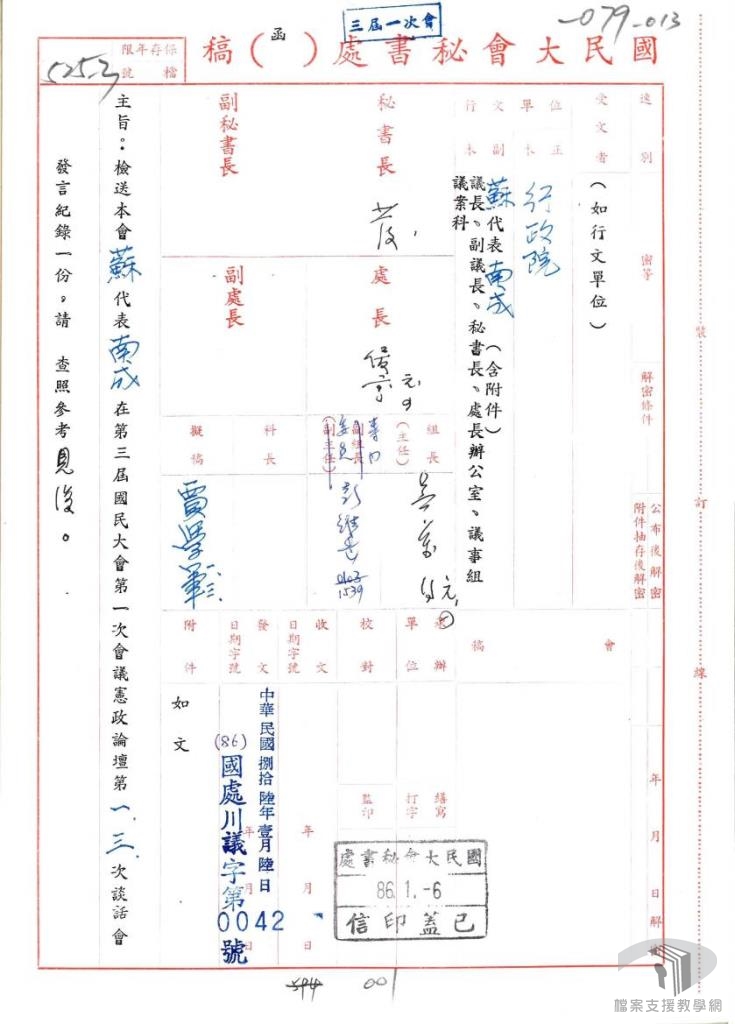 三屆一次會
-079-013
國民大會秘書處(函)稿
保存年限
檔號
525.2
速別
密等
解密條件
公布後解密
附件抽存後解密
年月日解密
受文者
(如行文單位)
行文單位
正本
行政院
副本
蘇代表南成(含附件)
議長、副議長、秘書長、處長辦公室、議事組
議案科
會稿
秘書長
副秘書長
處長
副處長
組長
(主任)
專門
委員
副組長
(副主任)
科長
擬稿
承辦單位
校對
收文
日期字號
發文
日期字號
附件
繕寫
打字
監印
年月日
年月日
中華民國捌拾陸年壹月陸日
(86)國處川議字第0042號
如文
國民大會秘書處
86.1.-6
已蓋印信
主旨:檢送本會蘇代表南成在第三屆國民大會第一次會議憲政論壇第一、三次談話會
發言紀錄一份。請 查照參考見復。
裝訂線
594 001
檔案支援教學網